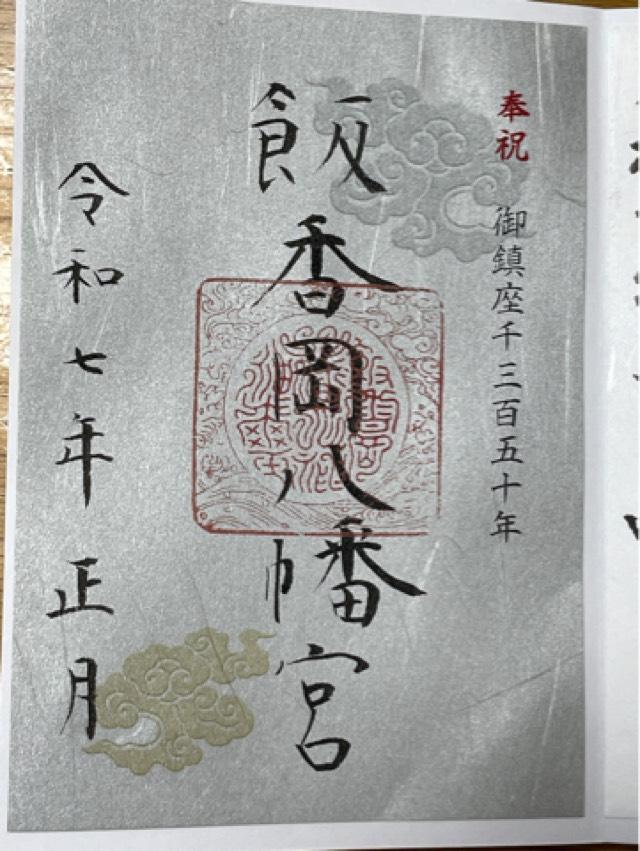 奉祝 御鎮座千三百五十年
飯香岡八幡宮
令和七年正月